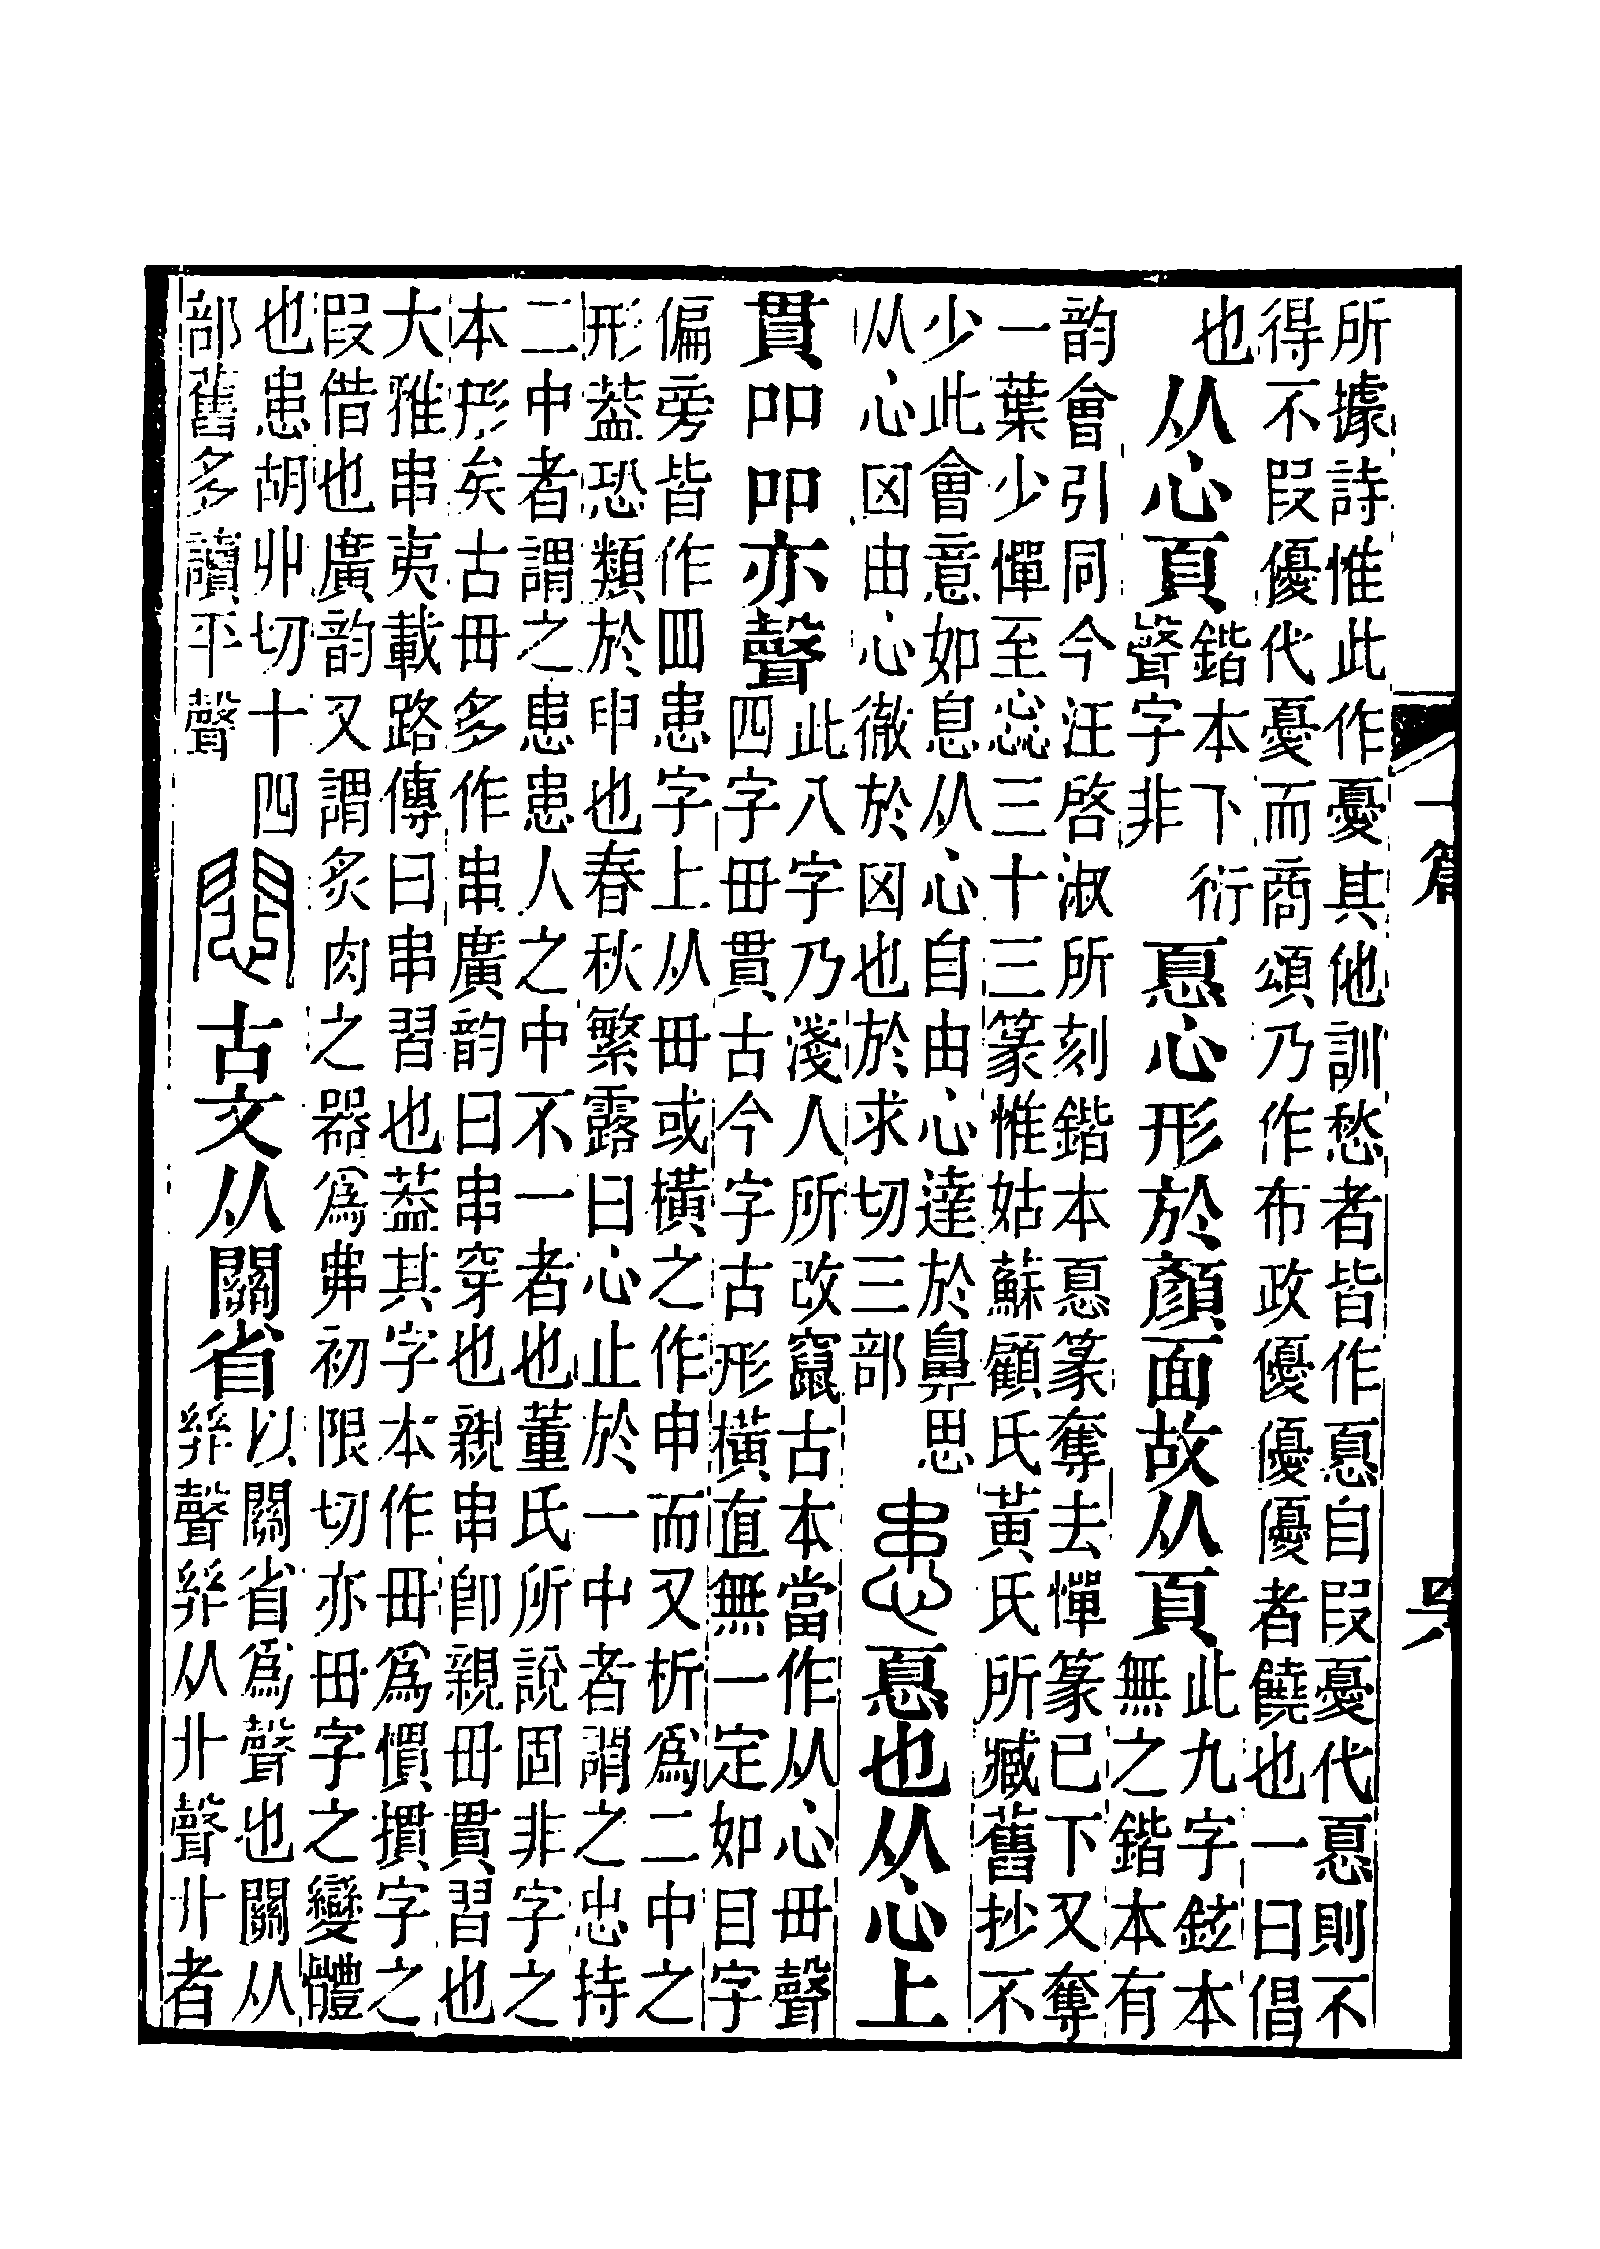 所據詩惟此作憂其他訓愁者皆作惪自叚憂代惪則不
得不叚優代憂而商頌乃作布政優優優者饒也一曰倡
也从心頁鍇本下衍聲字非惪心形於顏面故从頁此九字鉉本無之鍇本有
韵會引同今汪啓淑所刻鍇本惪篆奪去憚篆已下又奪
一葉少憚至惢三十三篆惟姑蘇顧氏黃氏所臧舊抄不
少此會意如息从心自由心達於鼻思
从心囟由心徹於囟也於求切三部
患惪也从心上
貫吅吅亦聲
此八字乃淺人所改竄古本當作从心毌聲
四字毌貫古今字古形橫直無一定如目字
偏旁皆作罒患字上从毌或橫之作申而又析爲二中之
形葢恐類於申也春秋繁露曰心止於一中者謂之忠持
二中者謂之患患人之中不一者也董氏所說固非字之
本形矣古毌多作串廣韵曰串穿也親串卽親毌貫習也
大雅串夷載路傳曰串習也葢其字本作毌爲慣摜字之
叚借也廣韵又謂炙肉之器爲弗初限切亦毌字之變體
也患胡丱切十四
部舊多讀平聲
古文从關省
以關省爲聲也關从
𢇇聲𢇇从卝聲卝者